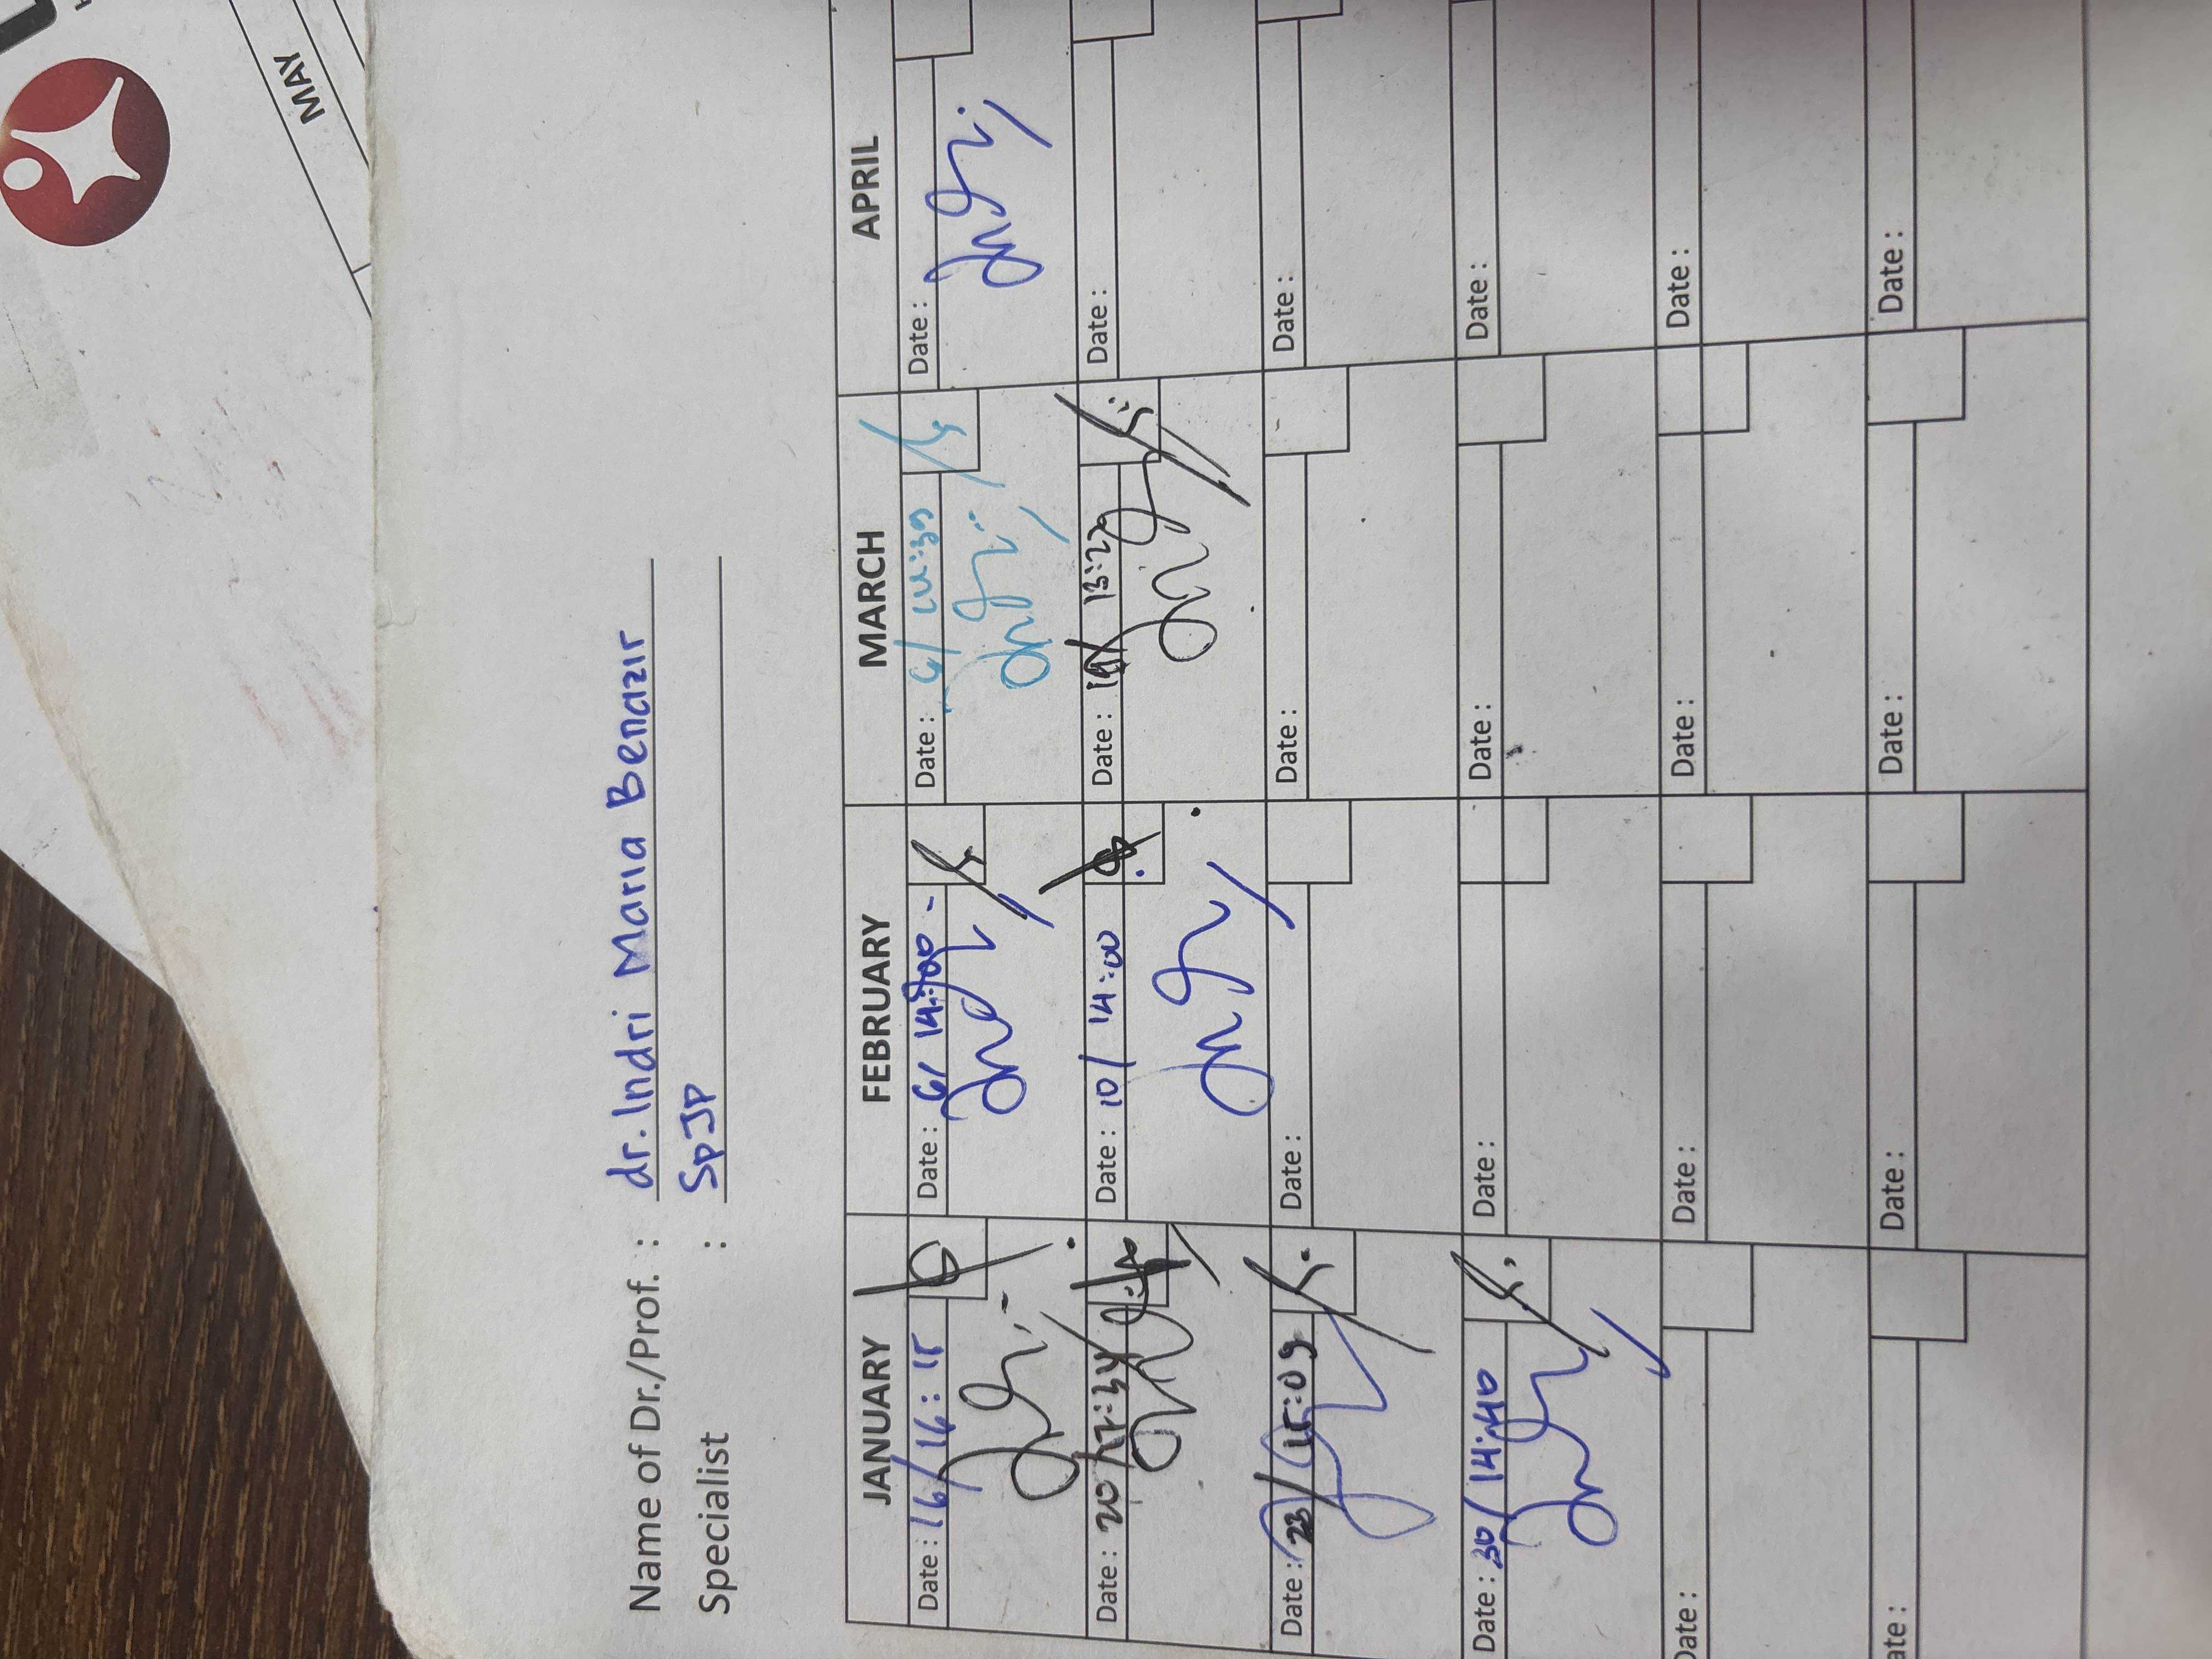 MAY
Name of Dr./Prof. : dr. Indri Maria Benazir
Specialist : SpJP
JANUARY FEBRUARY MARCH APRIL
Date : 16/ 16:15 Date : 6/ Date : 6/ Date :
Date : 20 Date : 10/ 14:00 Date : 13:2 Date :
Date : 23/ 15:09 Date : Date : Date :
Date : 30/ 14:40 Date : Date : Date :
Date : Date : Date : Date :
ate : Date : Date : Date :